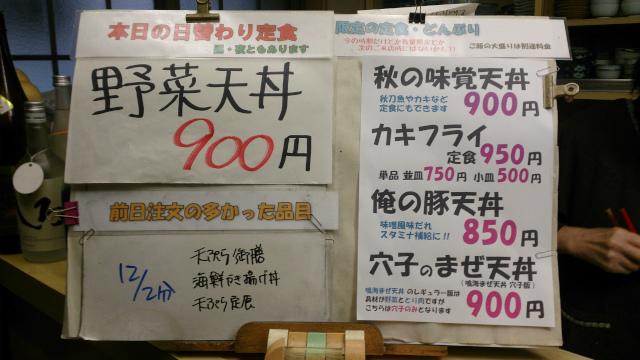 本日の日替わり定食
昼・夜ともあります
野菜天丼
900円
前日注文の多かった品目
12/2分
天ぷら御膳
海鮮かき揚げ丼
天ぷら定食
限定の定食・どんぶり
ご飯の大盛りは別途料金
秋の味覚天丼
秋刀魚やカキなど
定食にもできます
900円
カキフライ
定食 950円
単品 並皿 750円 小皿 500円
俺の豚天丼
味噌風味だれ
スタミナ補給に!!
850円
穴子のまぜ天丼
(鳴海まぜ天丼 穴子版)
鳴海まぜ天丼 のレギュラー版は
具材が野菜ととり肉ですが
こちらは穴子のみとなります
900円